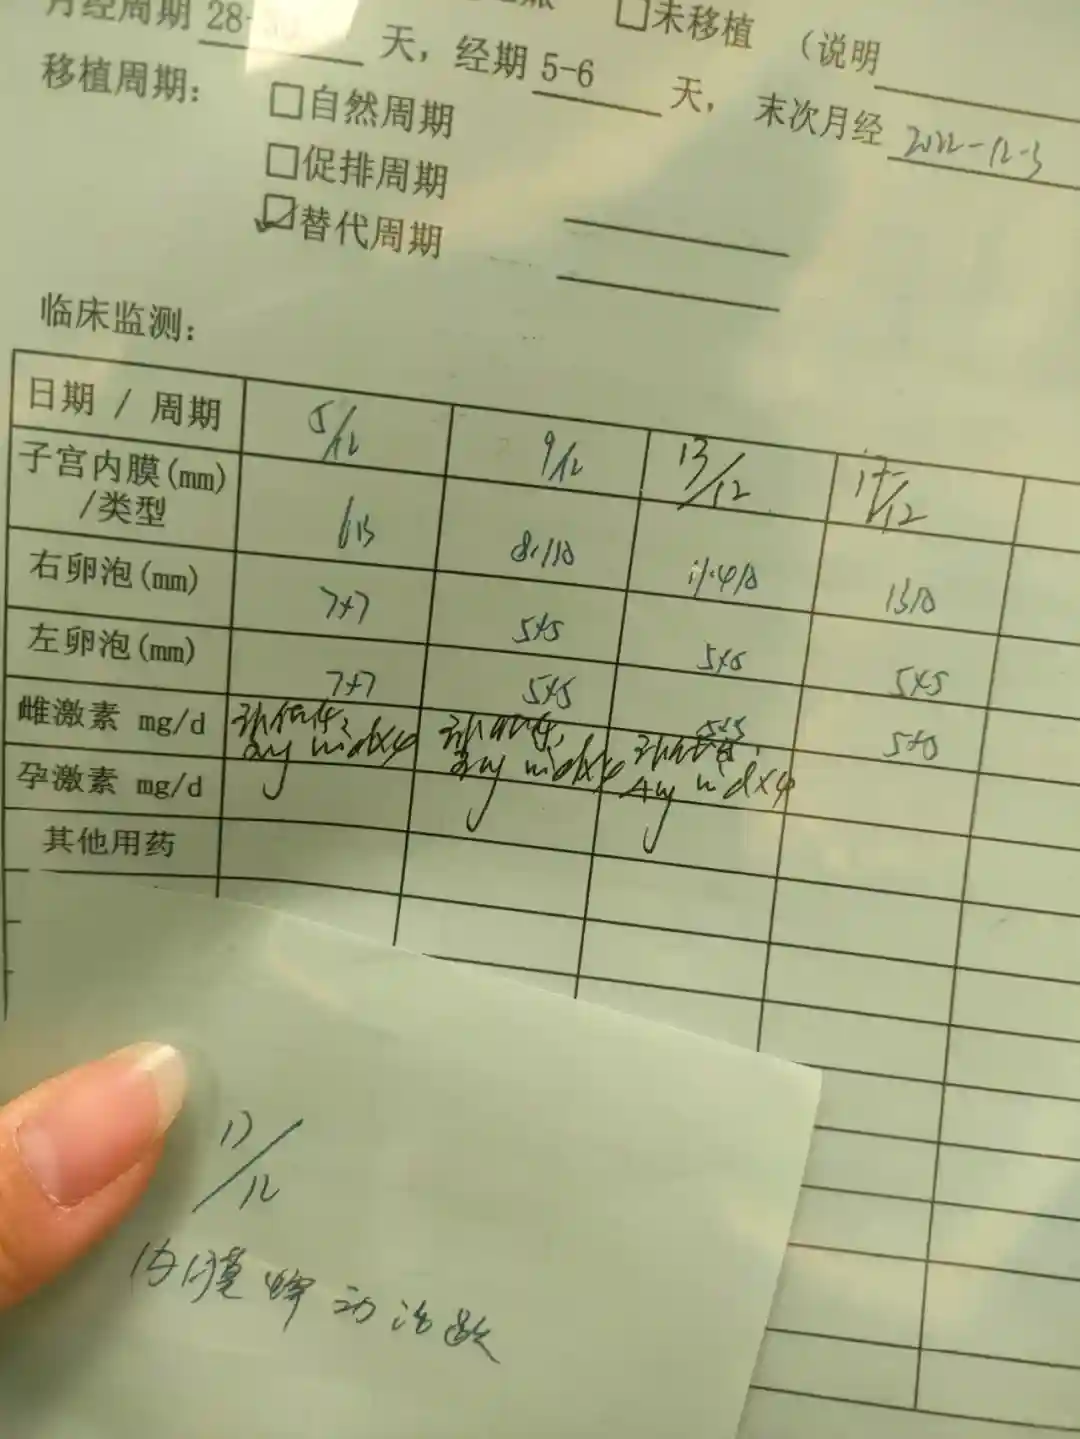 月经周期 28- 天，经期 5-6 天， 末次月经 2022-12-3
□未移植 （说明
移植周期： □自然周期
□促排周期
☑替代周期
临床监测：
日期 / 周期 5/12 9/12 13/12 17/12
子宫内膜(mm)/类型 6B 8.1B 11.4B 13B
右卵泡(mm) 7×7 5×5 5×5 5×5
左卵泡(mm) 7×7 5×5 5×5 5×5
雌激素 mg/d
孕激素 mg/d
其他用药
17/12
内膜蠕动活跃